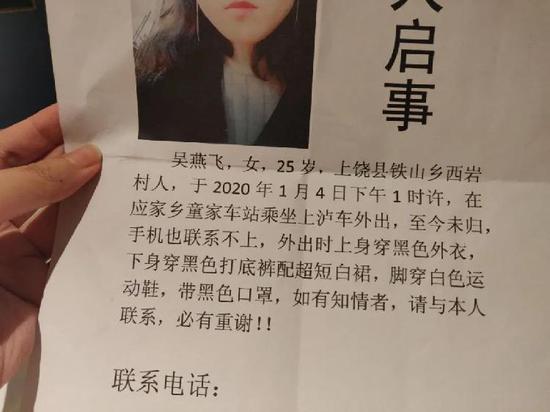 启事
吴燕飞，女，25 岁，上饶县铁山乡西岩
村人，于 2020 年 1 月 4 日下午 1 时许，在
应家乡童家车站乘坐上泸车外出，至今未归，
手机也联系不上，外出时上身穿黑色外衣，
下身穿黑色打底裤配超短白裙，脚穿白色运
动鞋，带黑色口罩，如有知情者，请与本人
联系，必有重谢!!
联系电话：